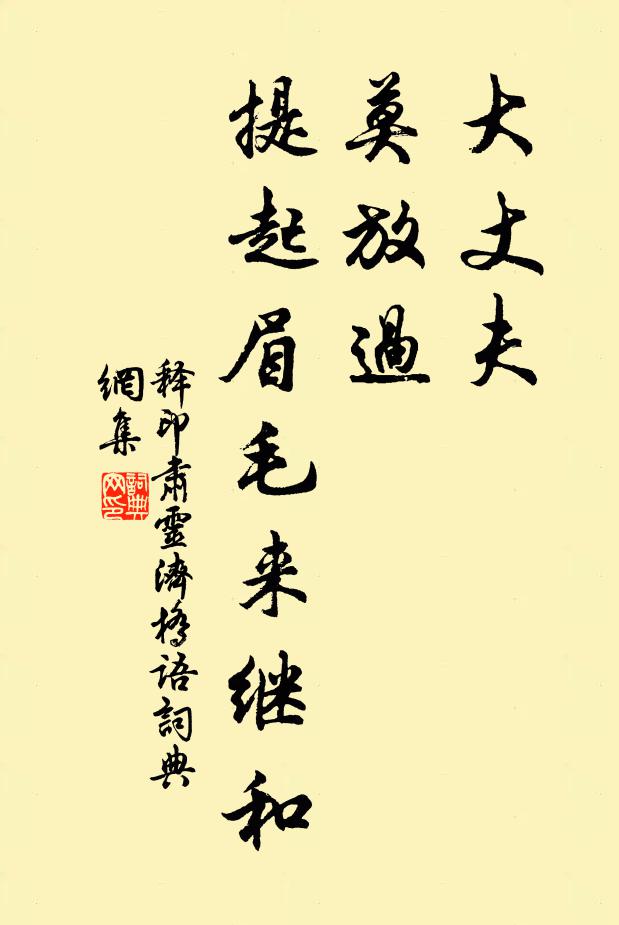 大丈夫
莫放過
提起眉毛来继和
释印肃靈濟橋语詞典
網集
詞典
网印